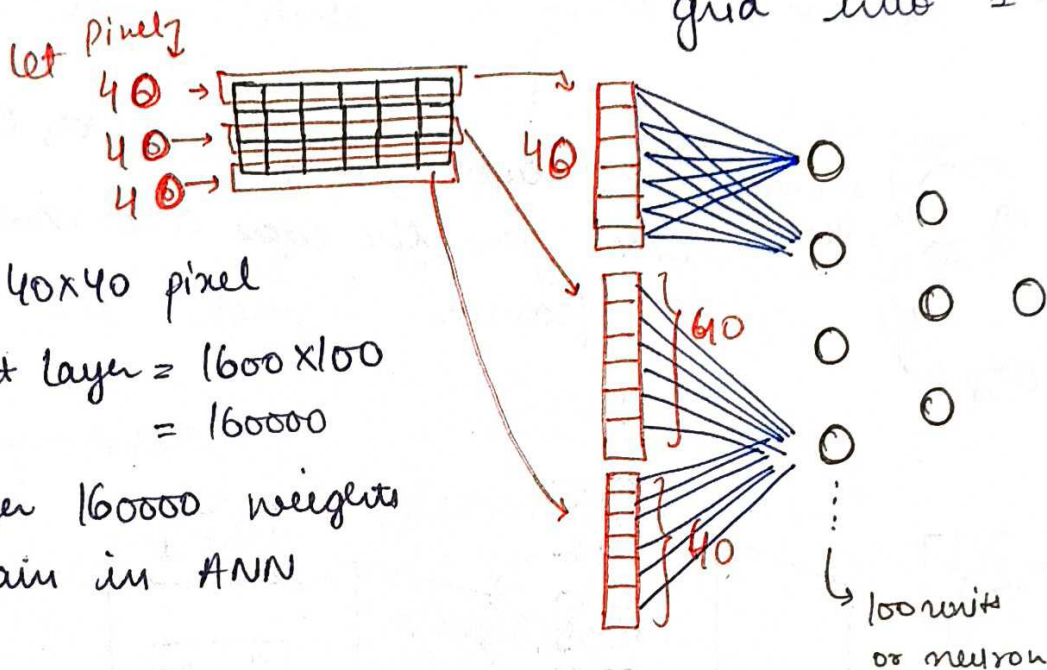 grid into 1
let pixels
40 →
40 →
40 →
40
40×40 pixel
t layer = 1600×100
= 160000
er 160000 weights
ain in ANN
40
40
100 units
or neuron